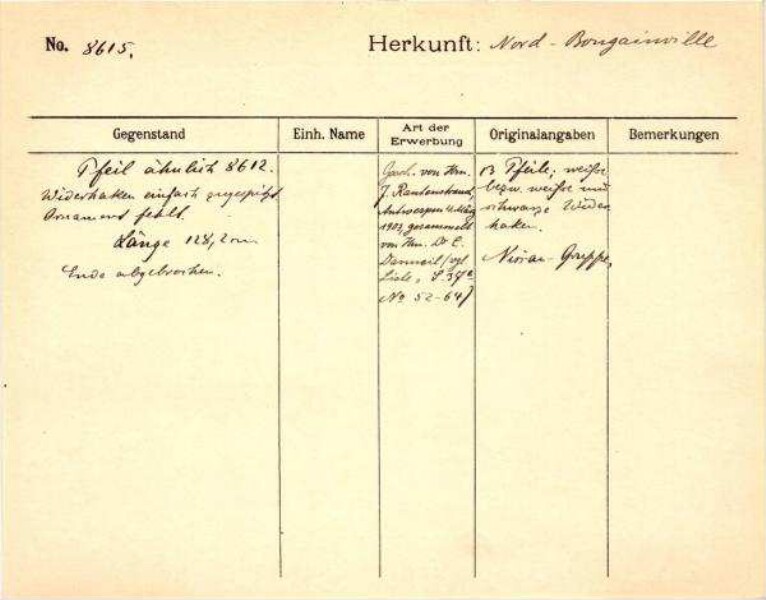 No. 8615.
Herkunft: Nord-Bougainville
Gegenstand
Einh. Name
Art der Erwerbung
Originalangaben
Bemerkungen
Pfeil ähnlich 8612.
Widerhaken einfach zugespitzt
Ornament fehlt.
Länge 128,2 cm.
Ende abgebrochen.
Gesch. von Hrn.
J.
Antwerpen März
1903, gesammelt
von Hrn. Dr. E.
(vgl.
Liste, S. 37a
No 52-64)
13 Pfeile; weiße
bezw. weiße und
schwarze Wider
haken.
Nissan-Gruppe,